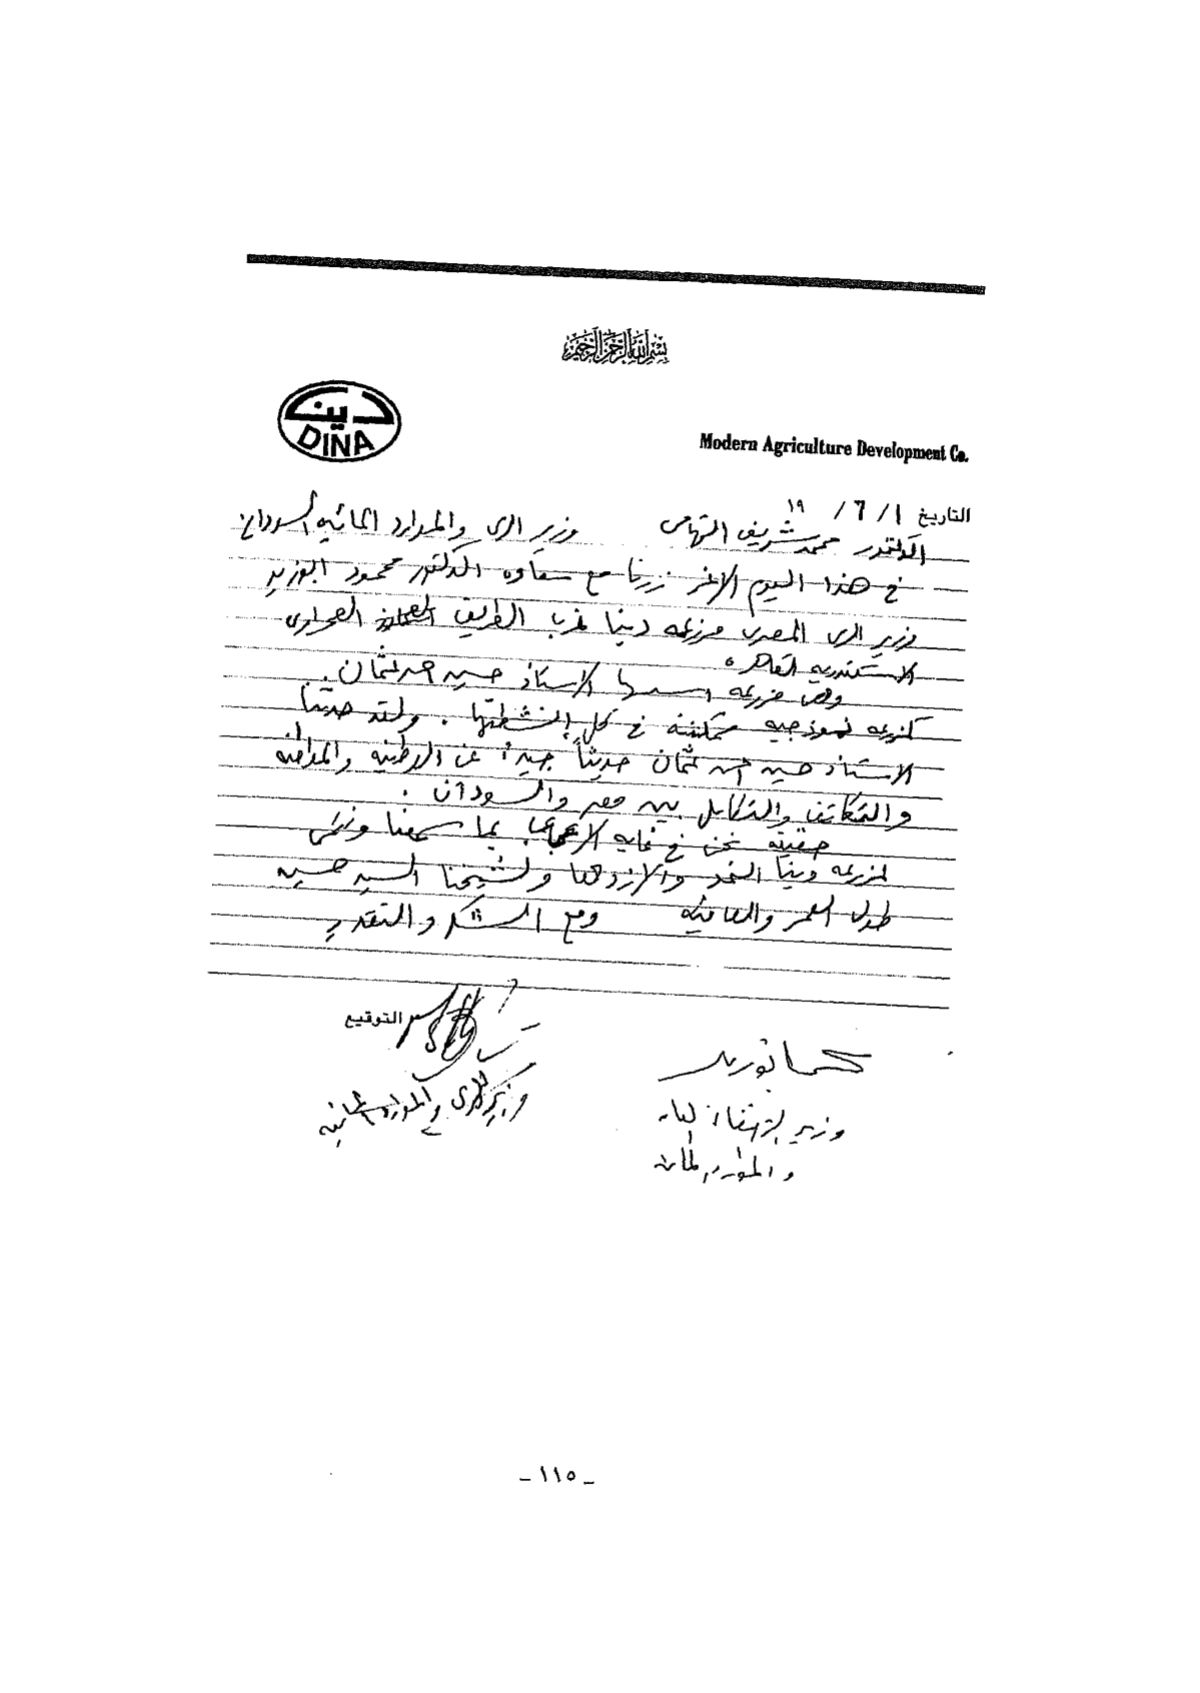 بسم الله الرحمن الرحيم
دينا
DINA
Modern Agriculture Development Co.
التاريخ ١ / ٦ / ١٩
الدكتور محمد شريف التهامى وزير الرى والموارد المائيه السودان
فى هذا اليوم الاغر زرنا مع سعاده الدكتور محمود ابوزيد
وزير الرى المصرى مزرعه دينا غرب الطريق الصحراوى
الاستكندريه القاهره
وهى مزرعه اسسها الاستاذ حسين احمد عثمان.
كمزرعه نموذجيه فى كل انشطتها. ولقد حدثنا
الاستاذ حسين احمد عثمان حديثاً جيداً عن الوطنيه
والتكاتف والتكامل بين مصر والسودان.
حقيقة نحن فى غايه الاعجاب بما سمعنا ونتمنى
لمزرعه دينا النمو والازدهار ولشيخنا السيد حسين
طول العمر والعافيه ومع الشكر والتقدير
التوقيع
وزير الرى والموارد المائيه
وزير
والموارد المائية
– ١١٥ –